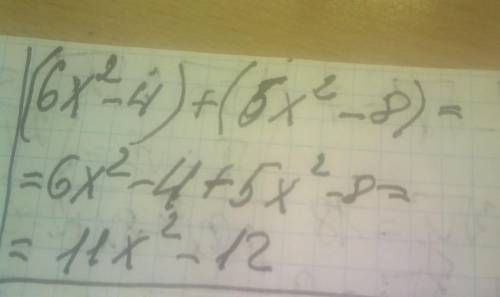 (6x² - 4) + (5x² - 8) =
= 6x² - 4 + 5x² - 8 =
= 11x² - 12